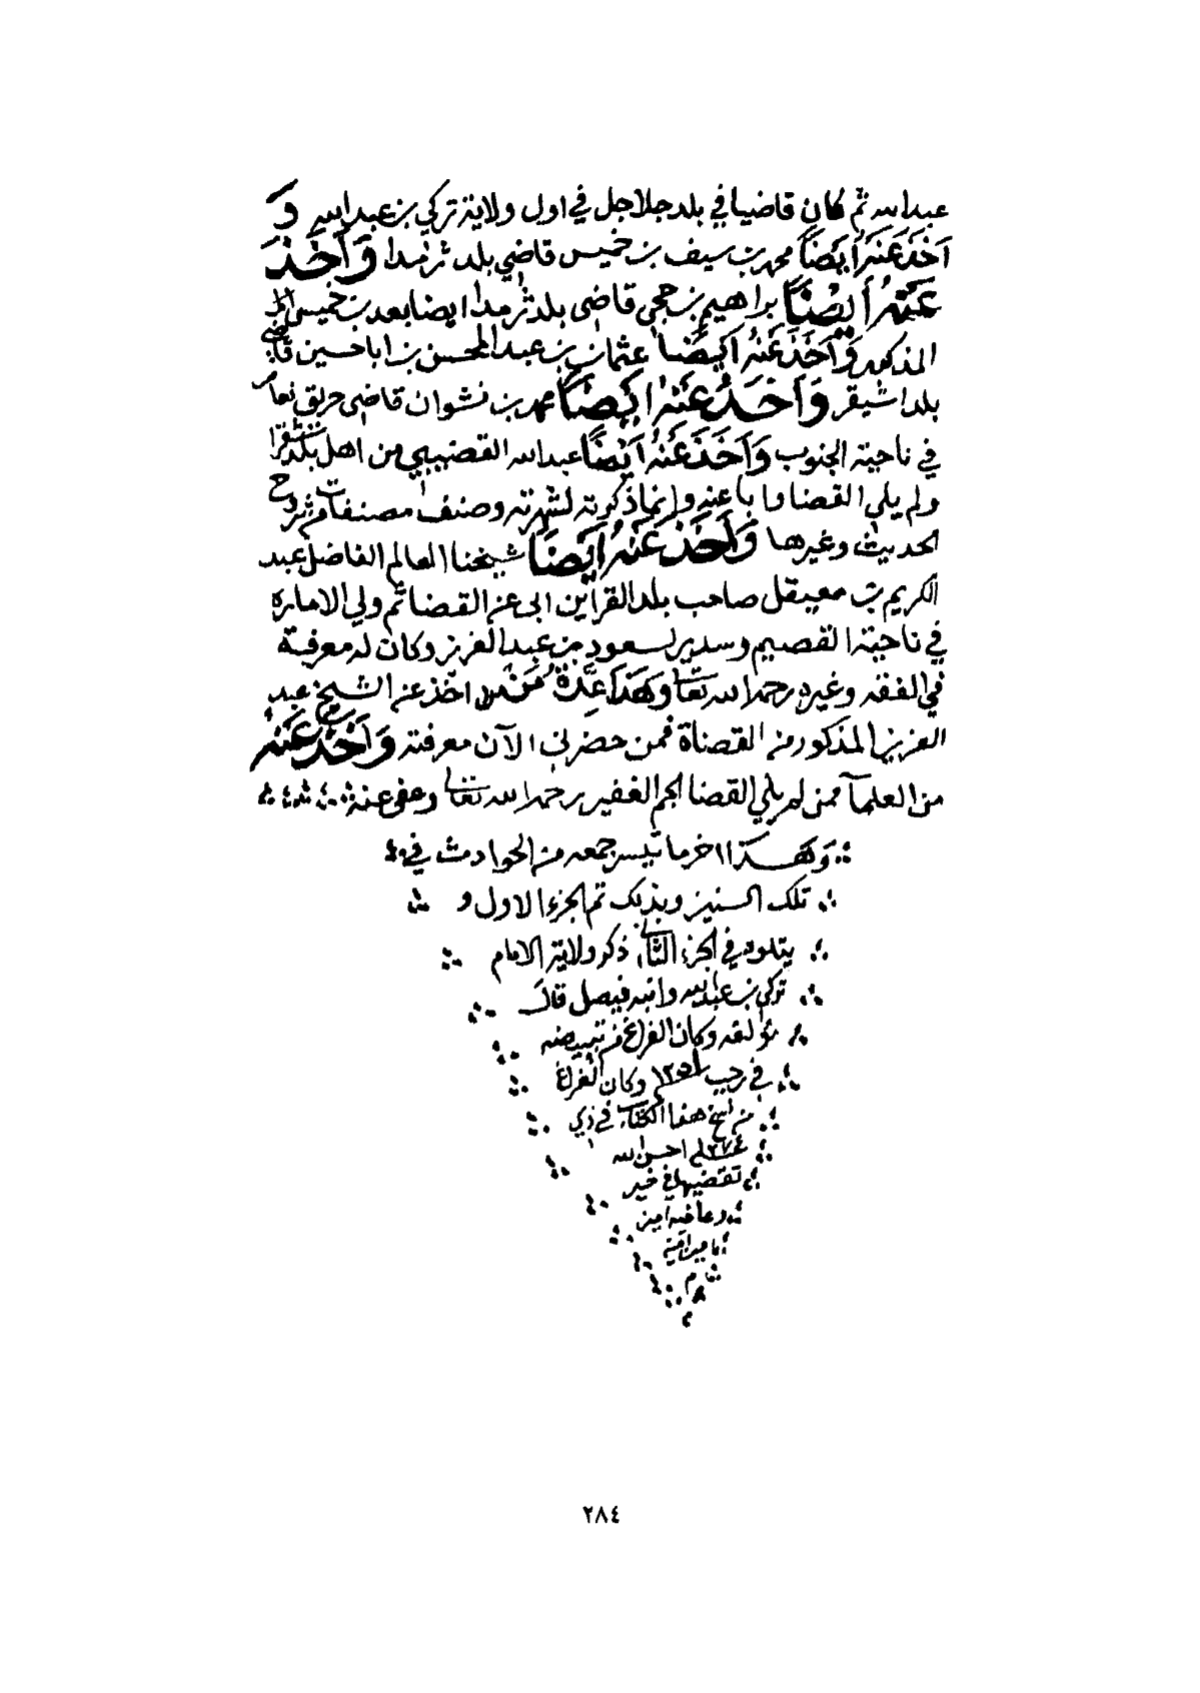 عبدالله ثم كان قاضيا في بلد جلاجل في اول ولاية تركي بن عبدالله وَ
اَخَذَ عَنْهُ اَيضًا محمد بن سيف بن خميس قاضي بلد ثرمدا وَاَخَذَ
عَنْهُ اَيضًا براهيم بن حجي قاضي بلد ثرمدا ايضا بعد بن خميس
المذكور وَاَخَذَ عَنْهُ اَيضًا عثمان بن عبد المحسن بن ابا حسين قاضي
بلد اشيقر وَاَخَذَ عَنْهُ اَيضًا محمد بن نشوان قاضي حريق نعام
في ناحية الجنوب وَاَخَذَ عَنْهُ اَيضًا عبدالله القضيبي من اهل بلد شقرا
ولم يلي القضا وانما ذكرته لشهرته وصنف مصنفات من شرح
الحديث وغيرها وَاَخَذَ عَنْهُ اَيضًا شيخنا العالم الفاضل عبد
الكريم بن معيقل صاحب بلد القراين ابى عن القضا ثم ولي الاماره
في ناحية القصيم وسدير لسعود بن عبد العزيز وكان له معرفة
في الفقه وغيره رحمه الله تعالى وَهَذَا عِدَّةُ مَنْ اخذ عن الشيخ عبد
العزيز المذكور من القضاة فمن حضرني الآن معرفته وَاَخَذَ عَنْهُ
من العلمآ ممن لم يلي القضا الجم الغفير رحمه الله تعالى وعفى عنه
وَهَذا اخر ما تيسر جمعه من الحوادث في
تلك السنين وبذلك تم الجزء الاول و
يتلوه في الجزء الثاني ذكر ولاية الامام
تركي بن عبدالله وابنه فيصل قال
مؤلفه وكان الفراغ من تبييضه
في رجب ١٢٥١ وكان الفراغ
من نسخ هذا الكتاب في ذي
احسن الله
تقضيها في خير
وعافيه امين
امين
م
٢٨٤